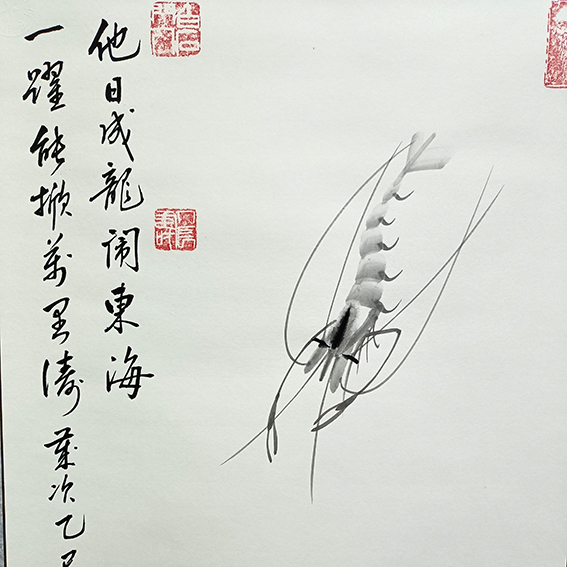 他日成龍闹東海
一躍能掀萬里濤歲次乙